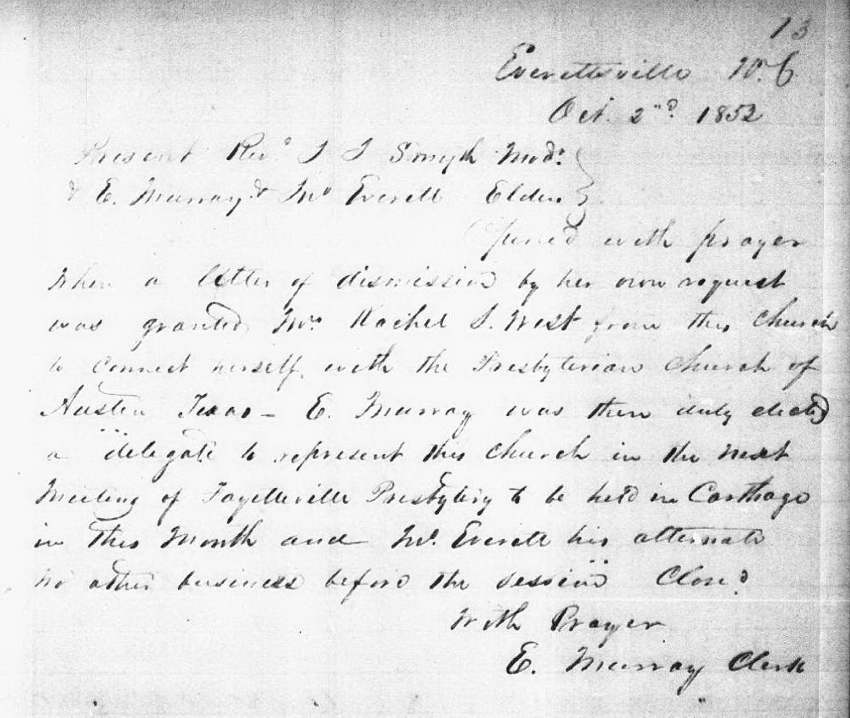 13
Everettsville N. C
Oct. 2nd 1852
Present Revd J J Smyth Modr
& E. Murray & Wm Everett Elders
Opened with prayer
When a letter of dismission by her own request
was granted Mrs Rachel S. West from this Church
to connect herself with the Presbyterian Church of
Austin Texas - E. Murray was then duly elected
a delegate to represent this Church in the next
Meeting of Fayetteville Presbytery to be held in Carthage
in this Month and Wm. Everett his alternate
No other business before the session Closed
With Prayer
E. Murray Clerk